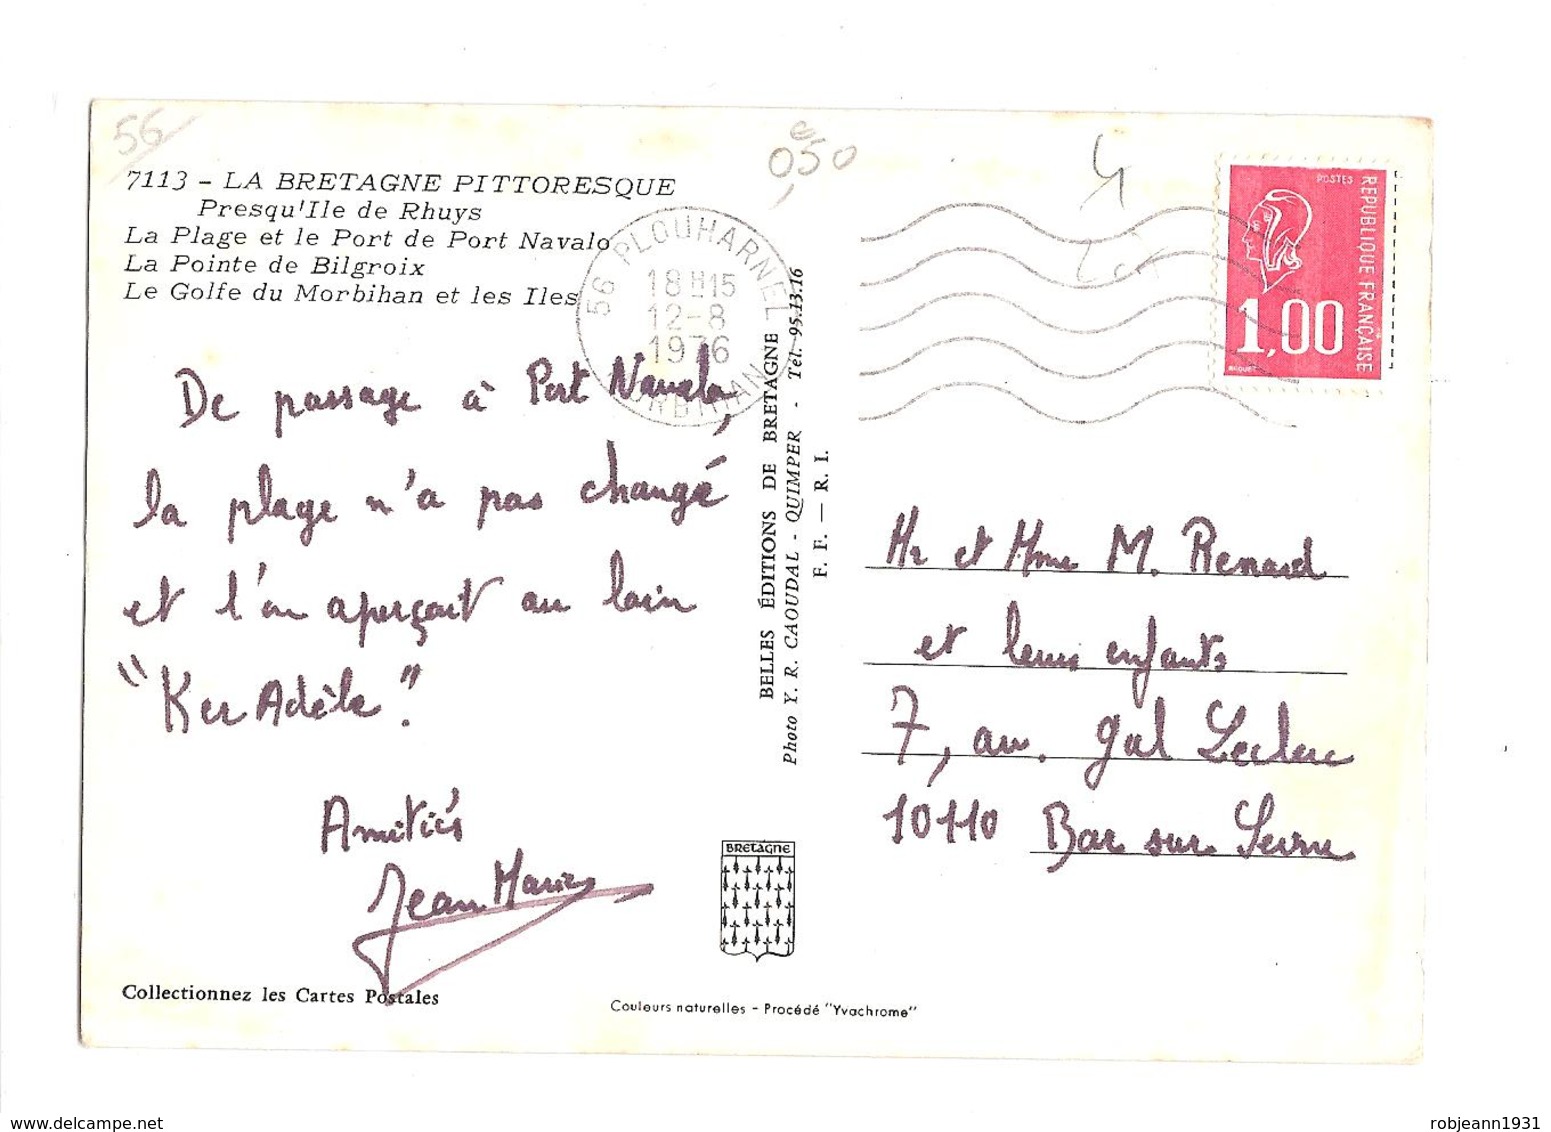 56
7113 - LA BRETAGNE PITTORESQUE
Presqu'Ile de Rhuys
La Plage et le Port de Port Navalo
La Pointe de Bilgroix
Le Golfe du Morbihan et les Iles
050
56 PLOUHARNEL
18H15
12-8
1976
MORBIHAN
POSTES
REPUBLIQUE FRANÇAISE
1,00
De passage à Port Navalo,
la plage n'a pas changé
et l'on aperçoit au loin
"Ker Adèle".
Amitiés
Jean Marie
BELLES ÉDITIONS DE BRETAGNE
Photo Y. R. CAOUDAL - QUIMPER - Tél. 95.13.16
F. F. — R. I.
Mr et Mme M. Renard
et leurs enfants
7, av. Gal Leclerc
10110 Bar sur Seine
BRETAGNE
Collectionnez les Cartes Postales
Couleurs naturelles - Procédé "Yvachrome"
www.delcampe.net
robjeann1931